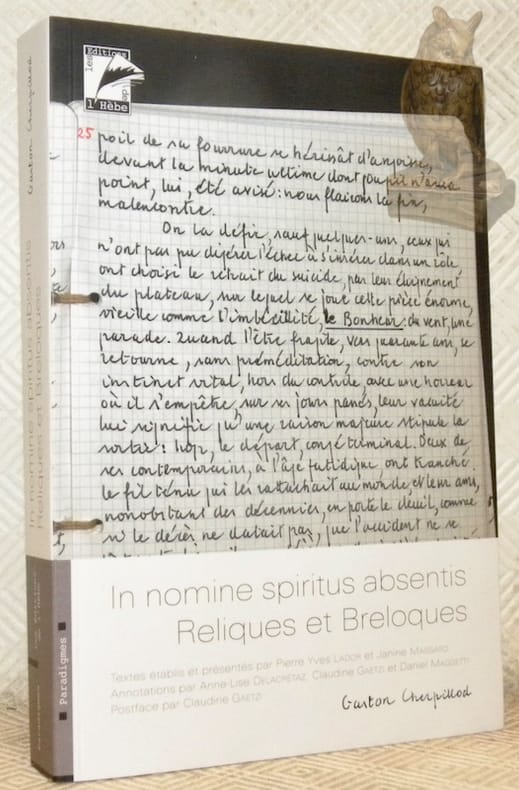 les Editions
de
l'Hèbe
25 poil de sa fourrure se hérissât d'angoisse,
devant la minute ultime dont goupil n'aura
point, lui, été avisé : nous flairons la fin,
malencontre.
On la défie, sauf quelques-uns, ceux qui
n'ont pas pu digérer l'échec à s'insérer dans un rôle
ont choisi le retrait du suicide, par leur éloignement
du plateau, sur lequel se joue cette pièce énorme,
vieille comme l'imbécillité, le Bonheur : du vent, une
parade. Quand l'être fragile, vers quarante ans, se
retourne, sans préméditation, contre son
instinct vital, hors du contrôle, avec une horreur
où il s'empêtre, sur ses jours panés, leur vacuité
lui signifie qu'une raison majeure stipule la
sortie : hop, le départ, congé terminal. Deux de
ses contemporains, à l'âge fatidique ont tranché
le fil ténu qui les rattachait au monde, et leur ami,
nonobstant des décennies, en porte le deuil, comme
si le décès ne datait pas, que l'accident ne se
In nomine spiritus absentis
Reliques et Breloques
Textes établis et présentés par Pierre Yves LADOR et Janine MASSARD
Annotations par Anne-Lise DELACRÉTAZ, Claudine GAETZI et Daniel MAGGETTI
Postface par Claudine GAETZI
Gaston Cherpillod
Gaston Cherpillod
In nomine spiritus absentis
Reliques et Breloques
Paradigmes